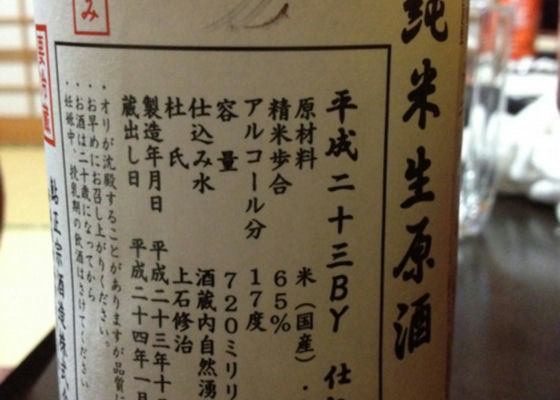 純米生原酒
平成二十三BY 仕
原材料 米(国産)・
精米歩合 65%
アルコール分 17度
容量 720ミリリ
仕込み水 酒蔵内自然湧
杜氏 上石修治
製造年月日 平成二十三年十
蔵出し日 平成二十四年一月
・オリが沈殿することがありますが品質に
・お早めにお召し上がりください。
・お酒は二十歳になってから
・妊娠中、授乳期の飲酒はさけてください
鮎正宗酒造株式会
み